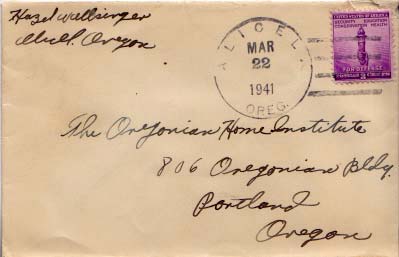 Hazel Wallsinger
Alicel, Oregon
ALICEL
MAR
22
1941
OREG.
UNITED STATES OF AMERICA
SECURITY EDUCATION
CONSERVATION HEALTH
FOR DEFENSE
3
The Oregonian Home Institute
806 Oregonian Bldg.
Portland
Oregon